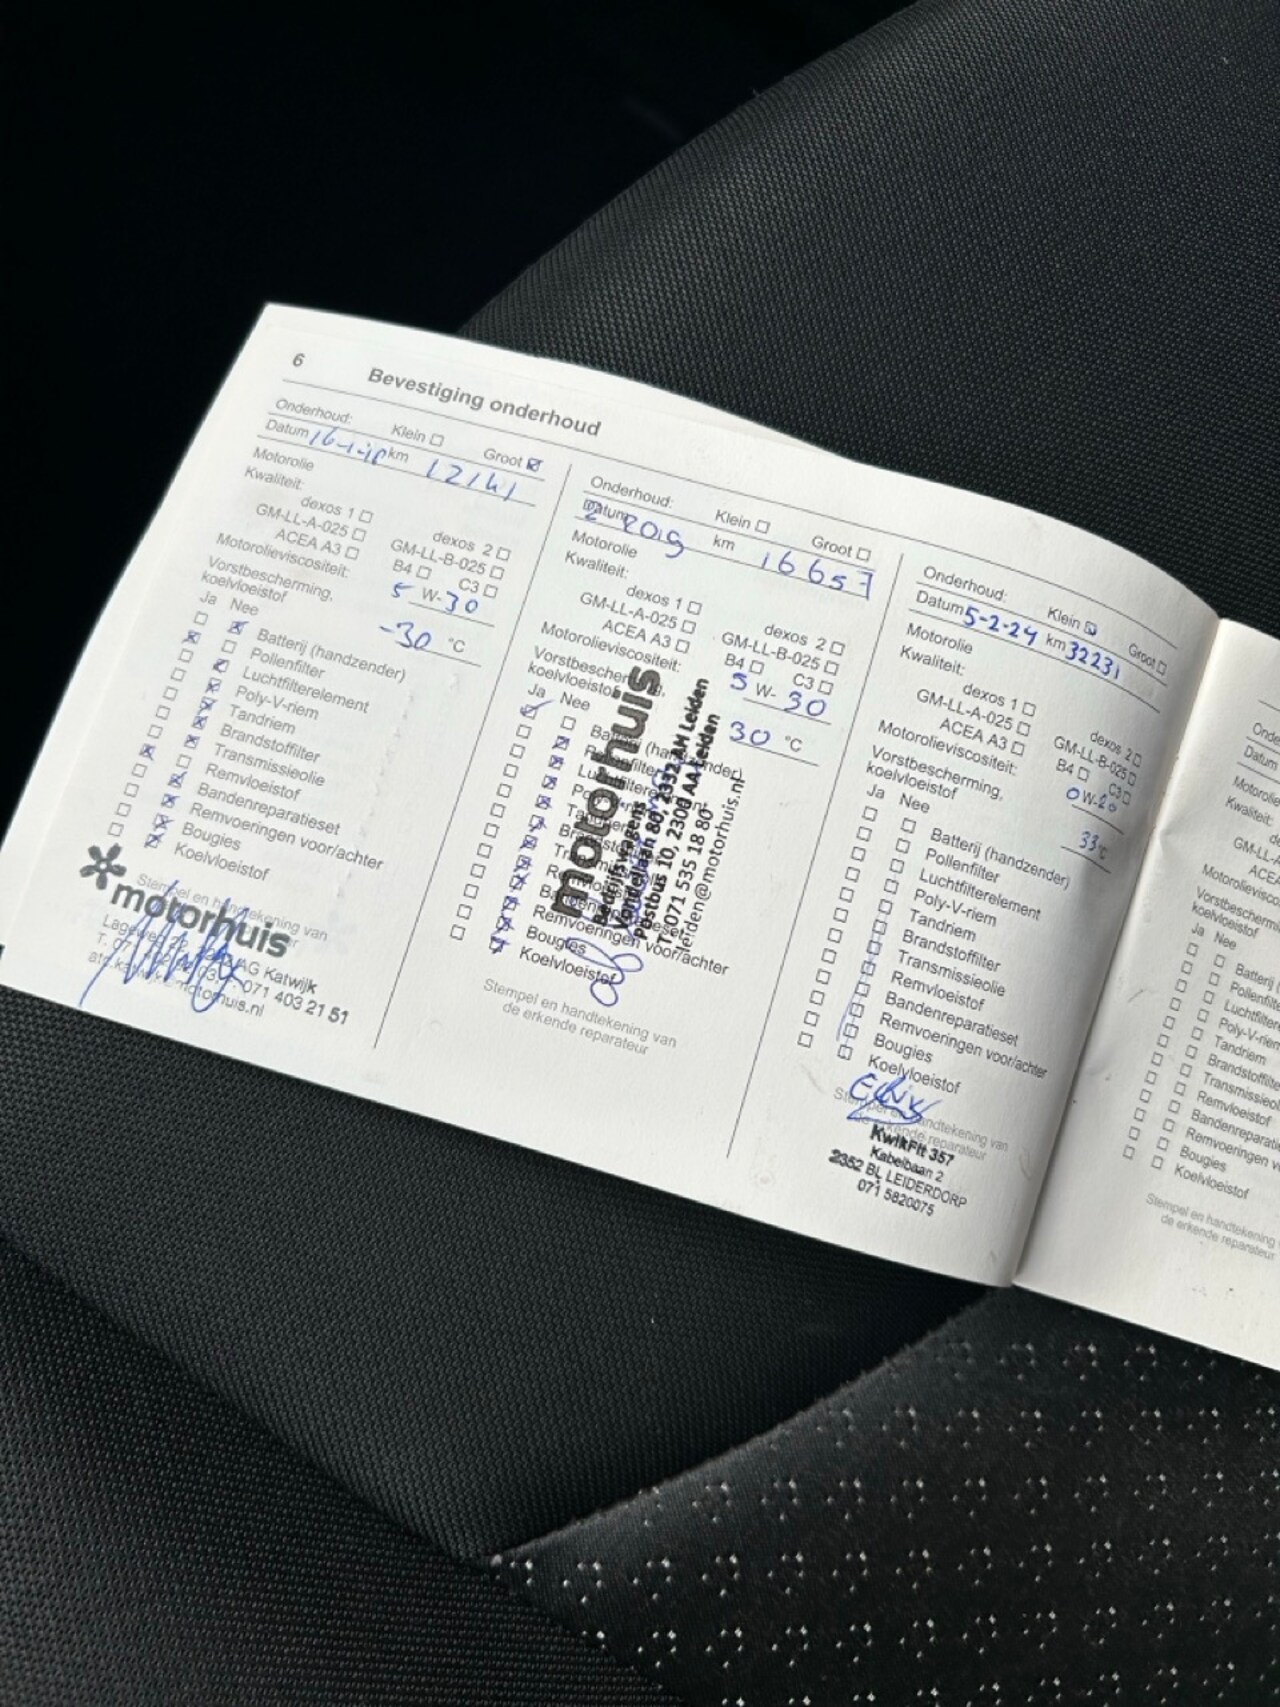 6 Bevestiging onderhoud
Onderhoud: Klein Groot
Datum km 12141
Motorolie
Kwaliteit:
dexos 1 dexos 2
GM-LL-A-025 GM-LL-B-025
ACEA A3 B4 C3
Motorolieviscositeit: 5 W- 30
Vorstbescherming,
koelvloeistof -30 °C
Ja Nee
Batterij (handzender)
Pollenfilter
Luchtfilterelement
Poly-V-riem
Tandriem
Brandstoffilter
Transmissieolie
Remvloeistof
Bandenreparatieset
Remvoeringen voor/achter
Bougies
Koelvloeistof
Stempel en handtekening van
motorhuis
AG Katwijk
071 403 21 51
Onderhoud: Klein Groot
Datum 2 2019 km 16657
Motorolie
Kwaliteit:
dexos 1 dexos 2
GM-LL-A-025 GM-LL-B-025
ACEA A3 B4 C3
Motorolieviscositeit: 5 W- 30
Vorstbescherming,
koelvloeistof 30 °C
Ja Nee
Remvoeringen voor/achter
Bougies
Koelvloeistof
motorhuis
Bedrijfswagens
Vondellaan 80, 2332 AH Leiden
postbus 10, 2300 AA Leiden
T. 071 535 18 80
leiden@motorhuis.nl
Stempel en handtekening van
de erkende reparateur
Onderhoud: Klein Groot
Datum 5-2-24 km 32231
Motorolie
Kwaliteit:
dexos 1 dexos 2
GM-LL-A-025 GM-LL-B-025
ACEA A3 B4 C3
Motorolieviscositeit: 0 W- 20
Vorstbescherming,
koelvloeistof 33 °C
Ja Nee
Batterij (handzender)
Pollenfilter
Luchtfilterelement
Poly-V-riem
Tandriem
Brandstoffilter
Transmissieolie
Remvloeistof
Bandenreparatieset
Remvoeringen voor/achter
Bougies
Koelvloeistof
Stempel en handtekening van
de erkende reparateur
KwikFit 357
Kabelbaan 2
2352 BL LEIDERDORP
071 5820075
Datum
Ja Nee
Poly-V-riem
Tandriem
Remvloeistof
Bougies
Koelvloeistof
Stempel en handtekening
de erkende reparateur